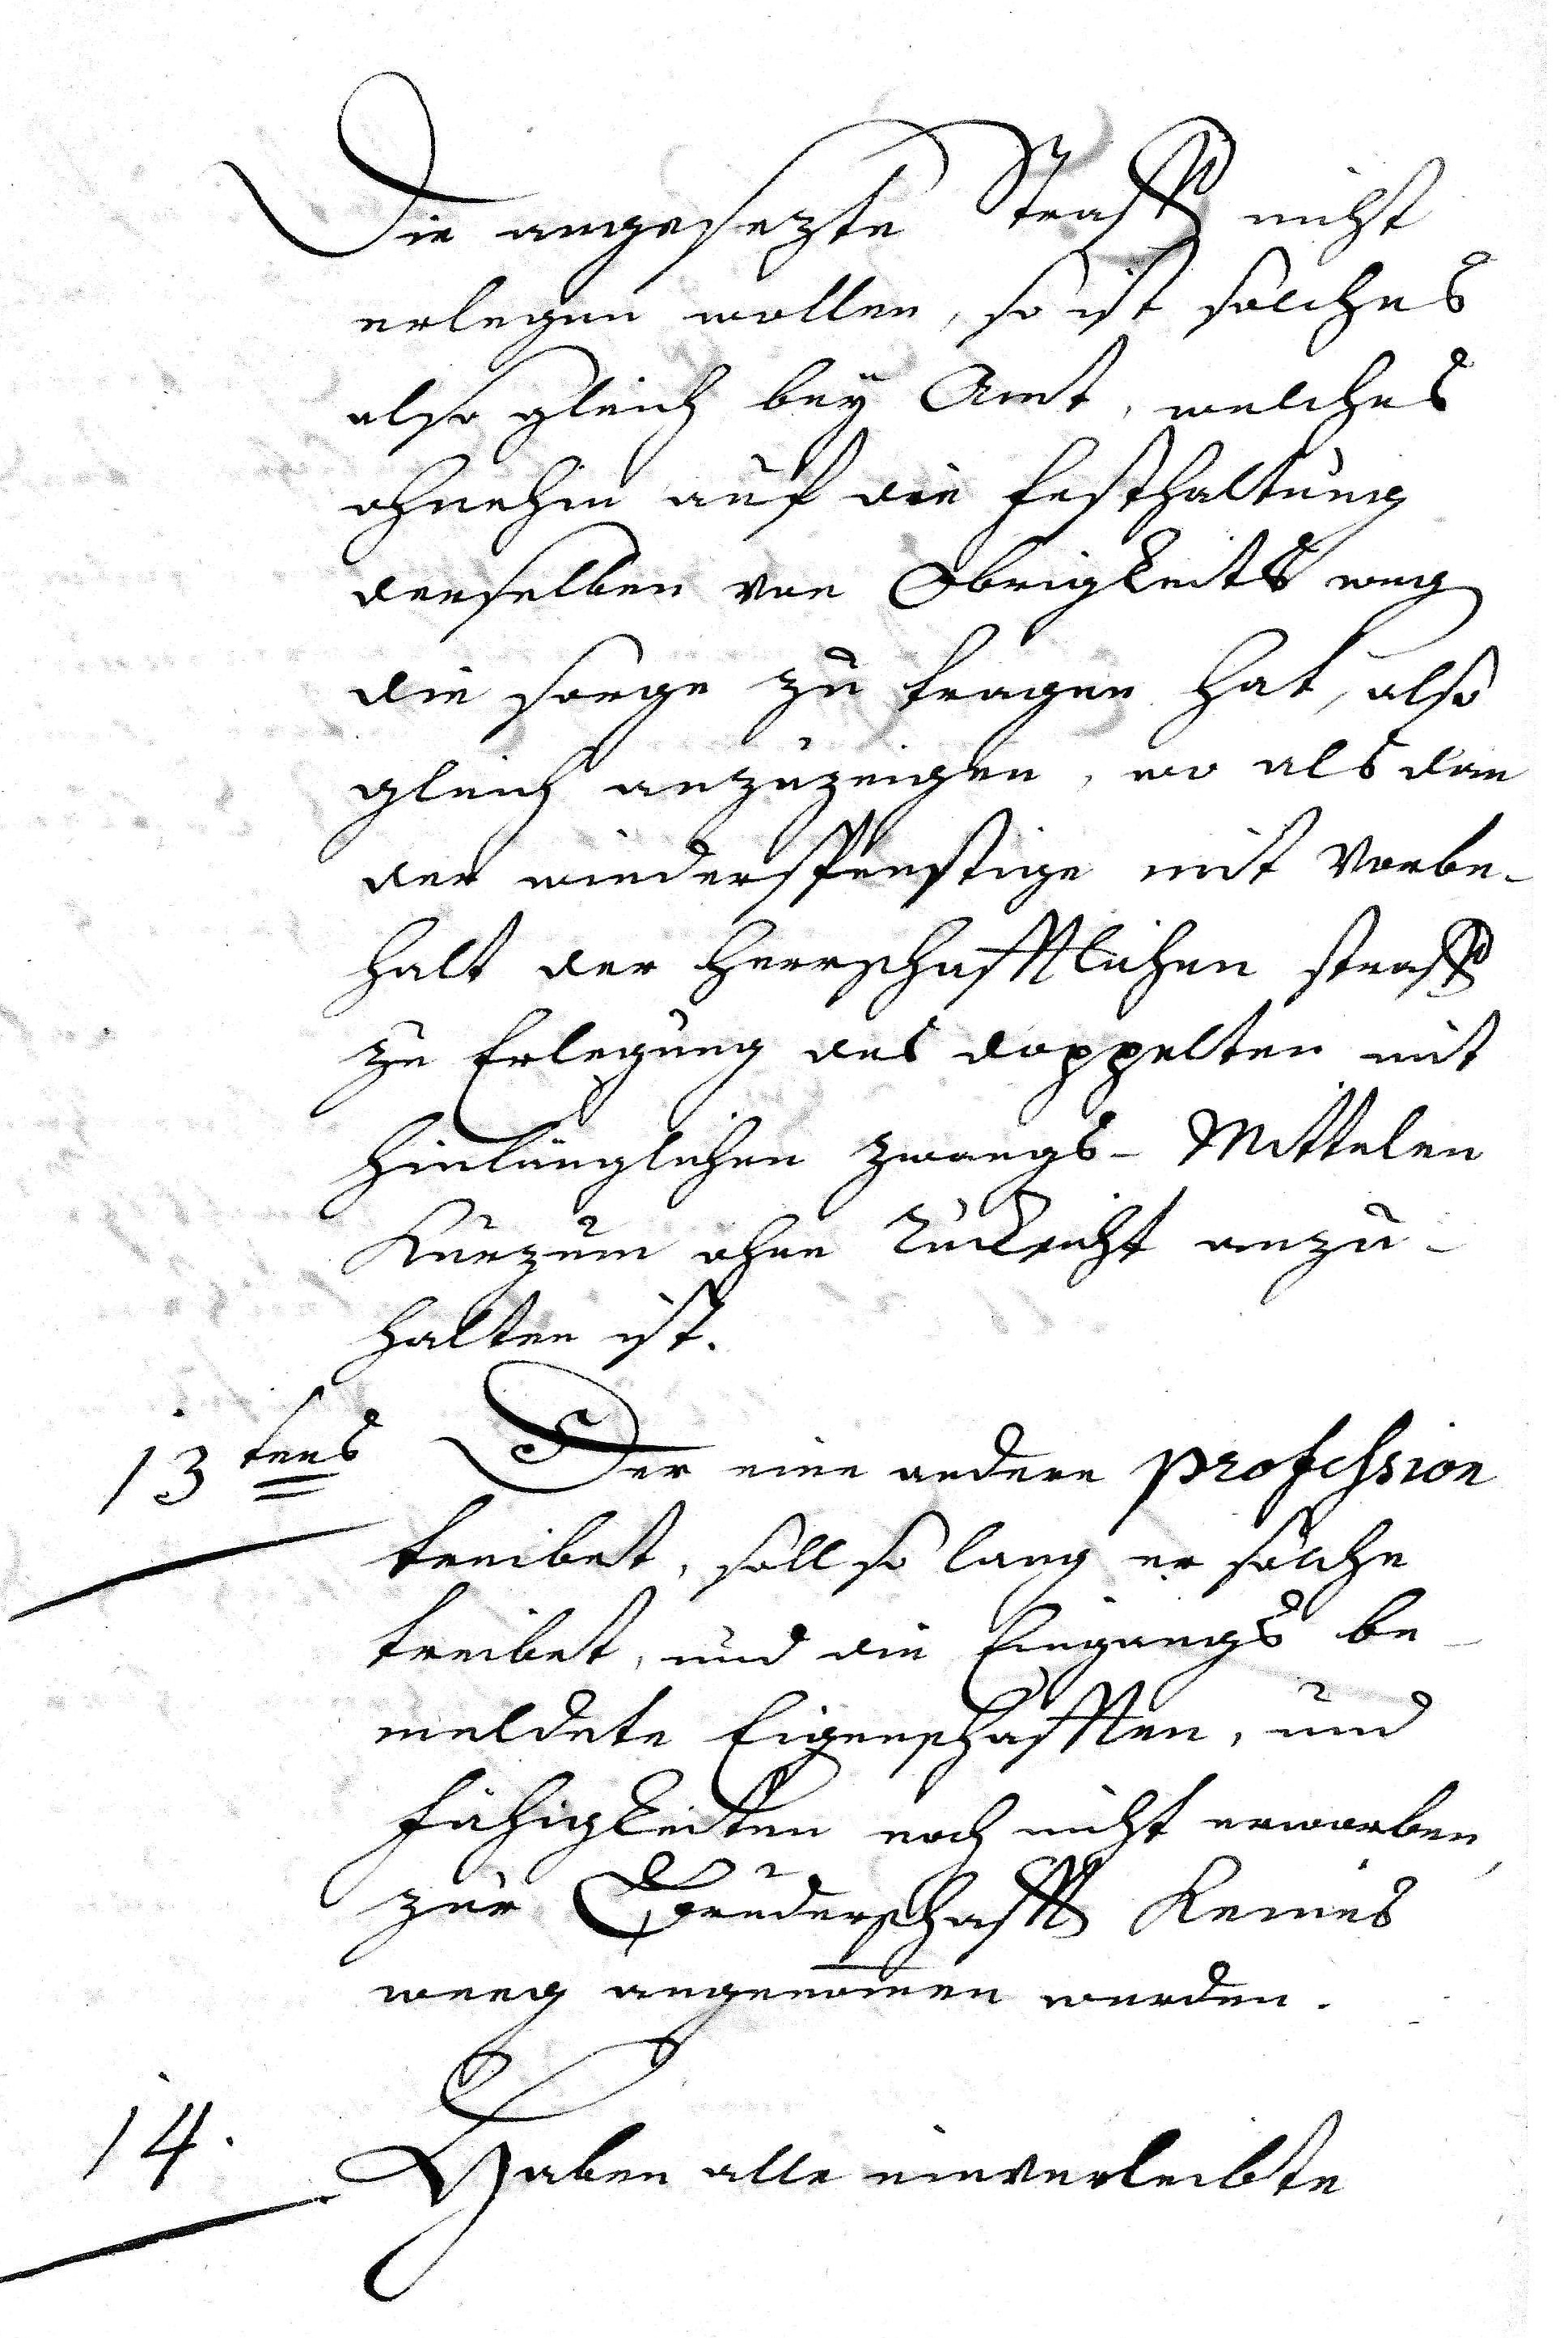 Die angesezte Straff nicht
erlegen wollen, so ist solches
also gleich bey Amt, welches
ohnehin auf die festhaltung
derselben von Obrigkeits weg
die sorge zu tragen hat, also
gleich anzuzeigen, wo als dan
der wiederspenstige mit Vorbe-
halt der Herrschafftlichen straff
zu Erlegung des doppelten mit
hinlänglichen zwangs- Mittelen
Kurzum ohne Rücksicht anzu-
halten ist.
13tens Der eine andere profession
treibet, soll so lang er solche
treibet, und die Eingangs be-
meldete Eigenschafften, und
fähigkeiten noch nicht erworben,
zur Bruderschafft Keines
weeg angenomen werden.
14. Haben alle einverleibte